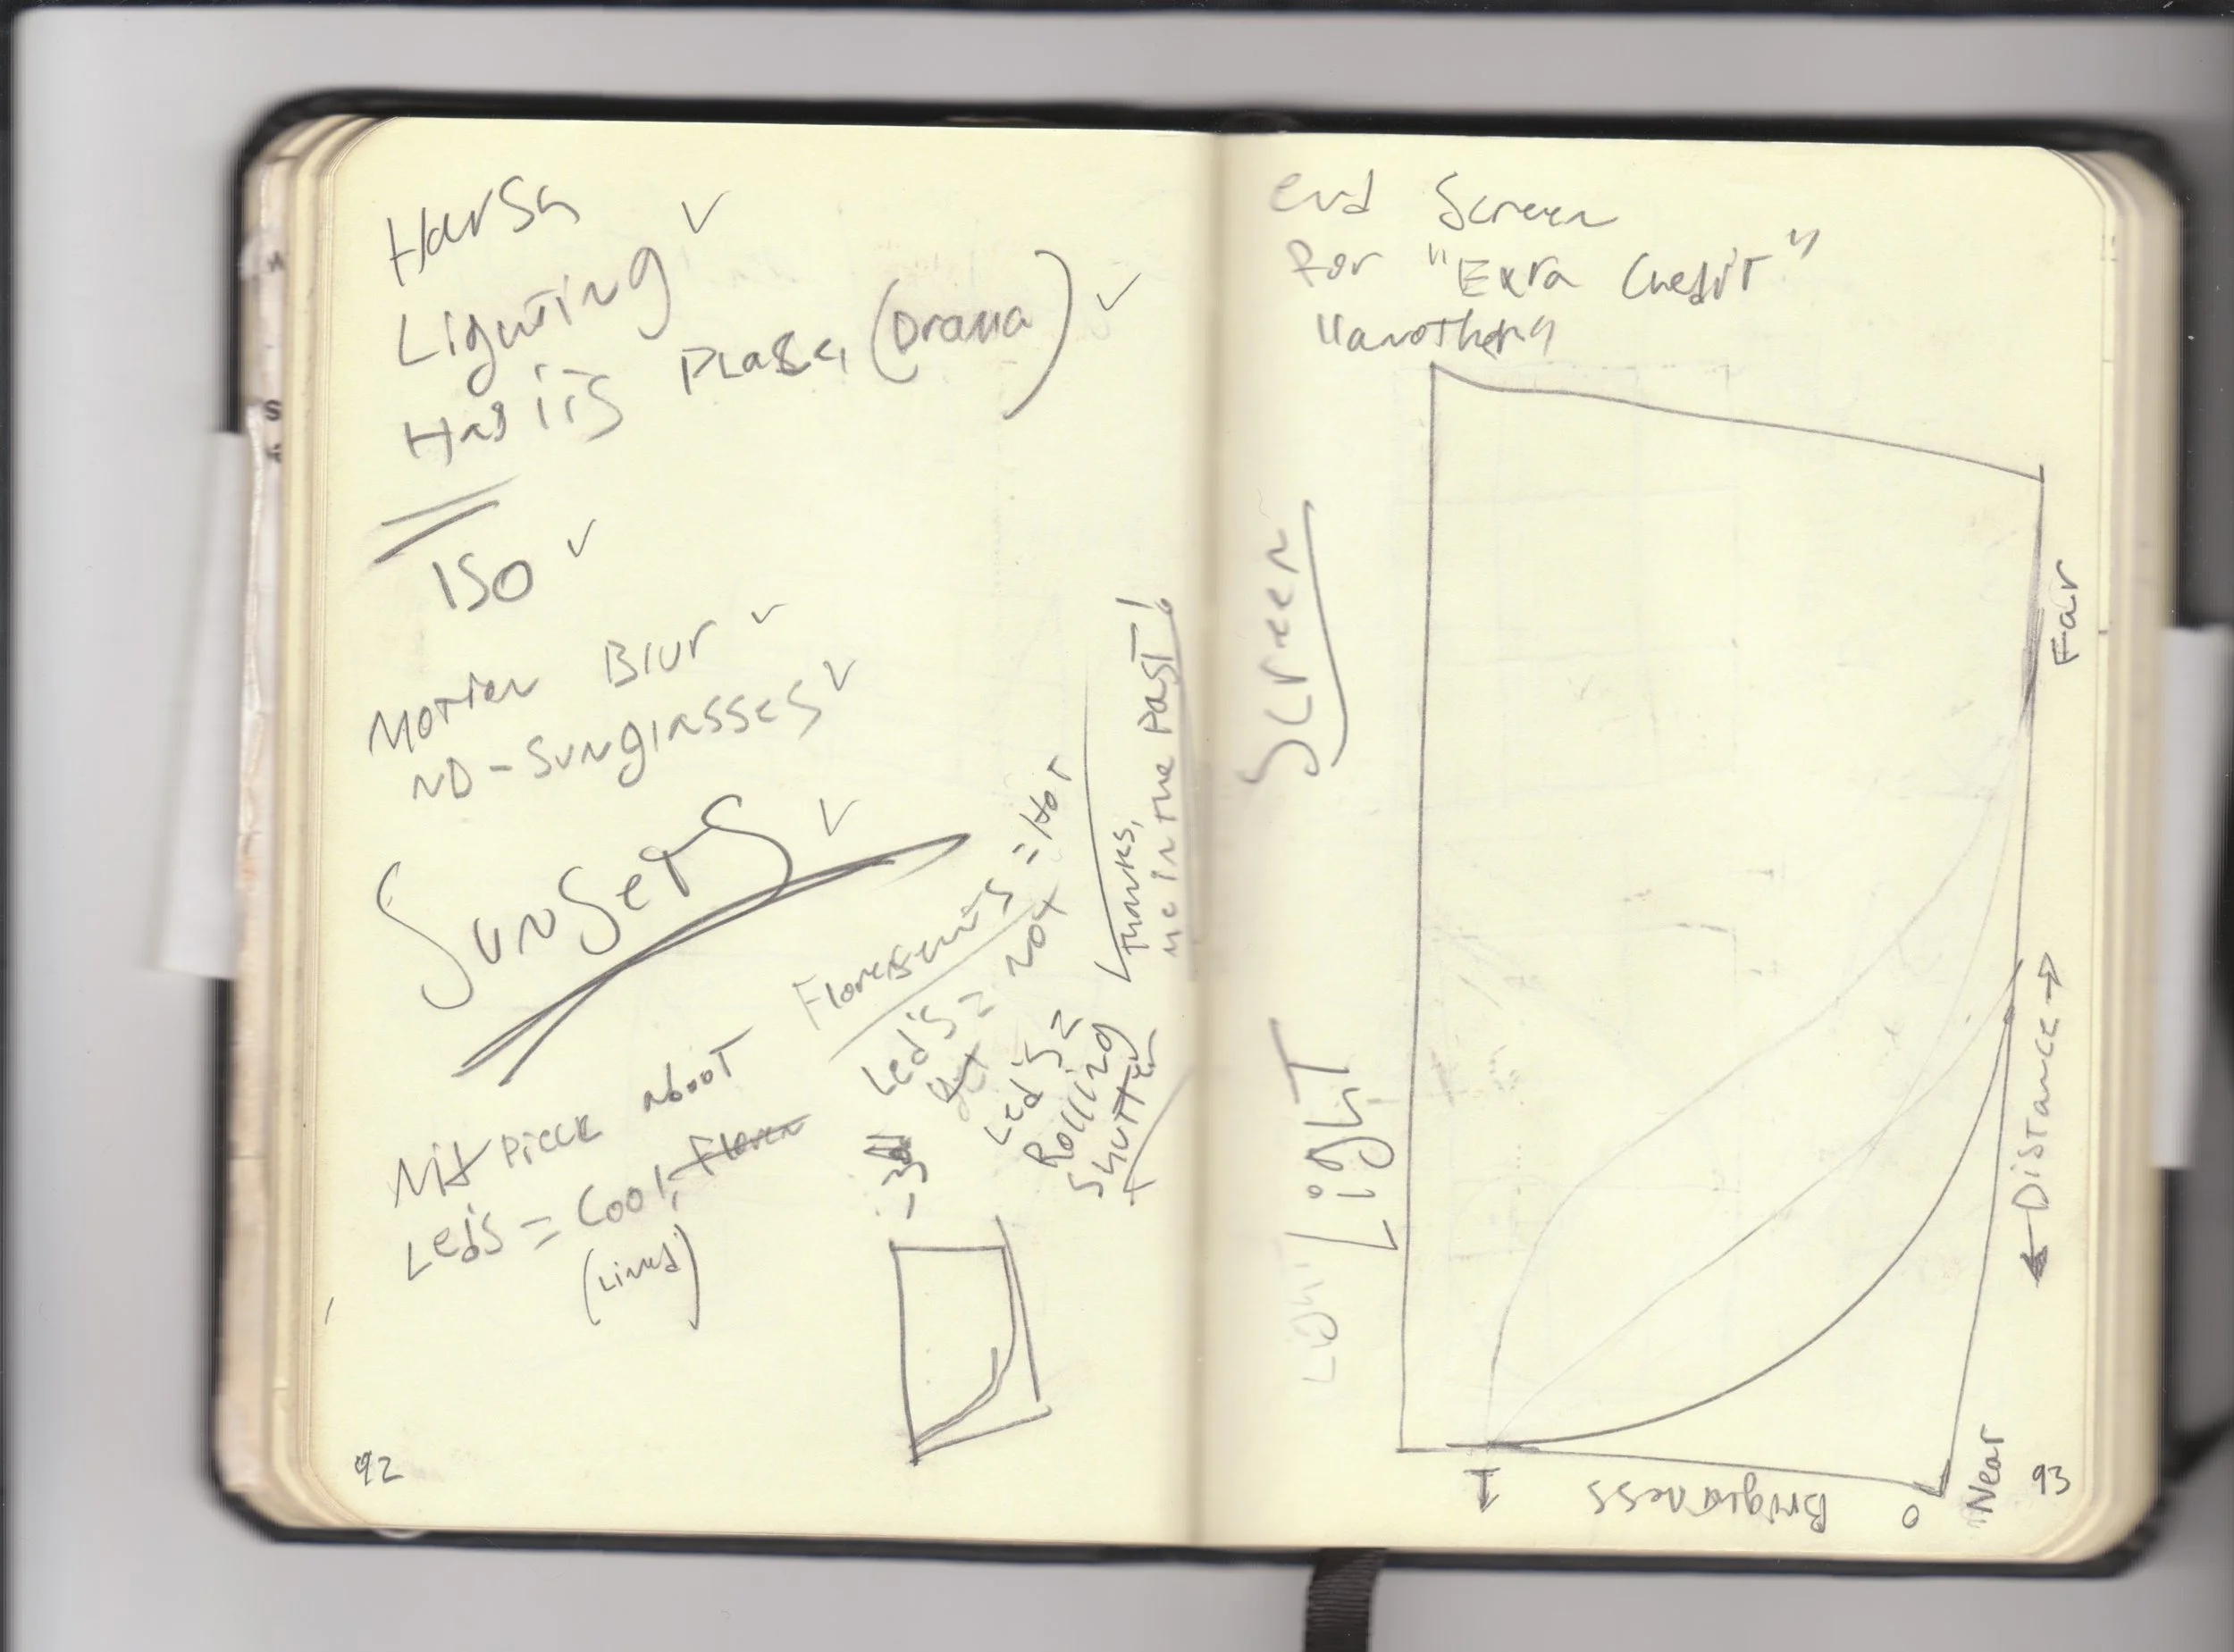 Harsh
Lighting ✓
Has it's Place, (Drama) ✓
ISO ✓
Motion Blur ✓
ND - Sunglasses ✓
Sunsets ✓
Nit Pick about
Led's = Cool,
(Lined)
= Hot
Led's = not
Led's =
Rolling
Shutter
Thanks,
me in the past!
92
end Screen
for "Exra Credit"
"another"
Screen
Light
Light
Far
← Distance →
Near
1 Brightness 0
93